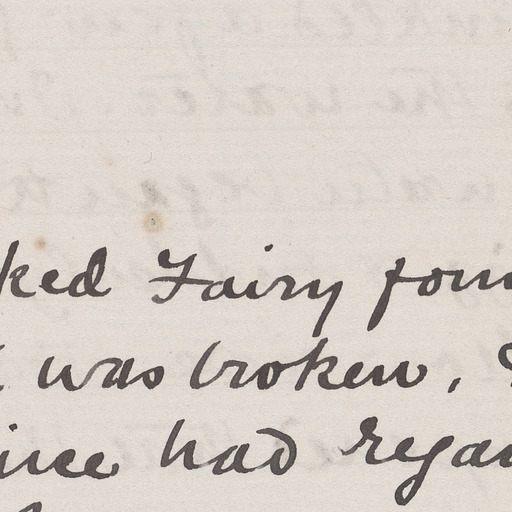 ked Fairy foun
was broken,
ince had regar